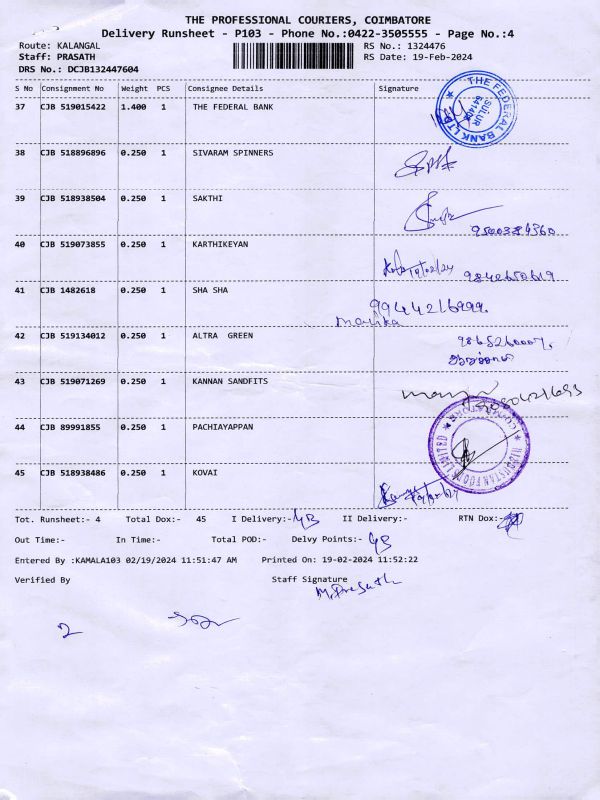 THE PROFESSIONAL COURIERS, COIMBATORE
Delivery Runsheet - P103 - Phone No.:0422-3505555 - Page No.:4
Route: KALANGAL RS No.: 1324476
Staff: PRASATH RS Date: 19-Feb-2024
DRS No.: DCJB132447604
S No Consignment No Weight PCS Consignee Details Signature
37 CJB 519015422 1.400 1 THE FEDERAL BANK
THE FEDERAL BANK LTD
SULUR
38 CJB 518896896 0.250 1 SIVARAM SPINNERS
39 CJB 518938504 0.250 1 SAKTHI
40 CJB 519073855 0.250 1 KARTHIKEYAN
19/02/24 9842650619
41 CJB 1482618 0.250 1 SHA SHA
9944216999.
42 CJB 519134012 0.250 1 ALTRA GREEN
43 CJB 519071269 0.250 1 KANNAN SANDFITS
44 CJB 89991855 0.250 1 PACHIAYAPPAN
45 CJB 518938486 0.250 1 KOVAI
Tot. Runsheet:- 4 Total Dox:- 45 I Delivery:- II Delivery:- RTN Dox:-
Out Time:- In Time:- Total POD:- Delvy Points:-
Entered By :KAMALA103 02/19/2024 11:51:47 AM Printed On: 19-02-2024 11:52:22
Verified By Staff Signature
M. Prasath